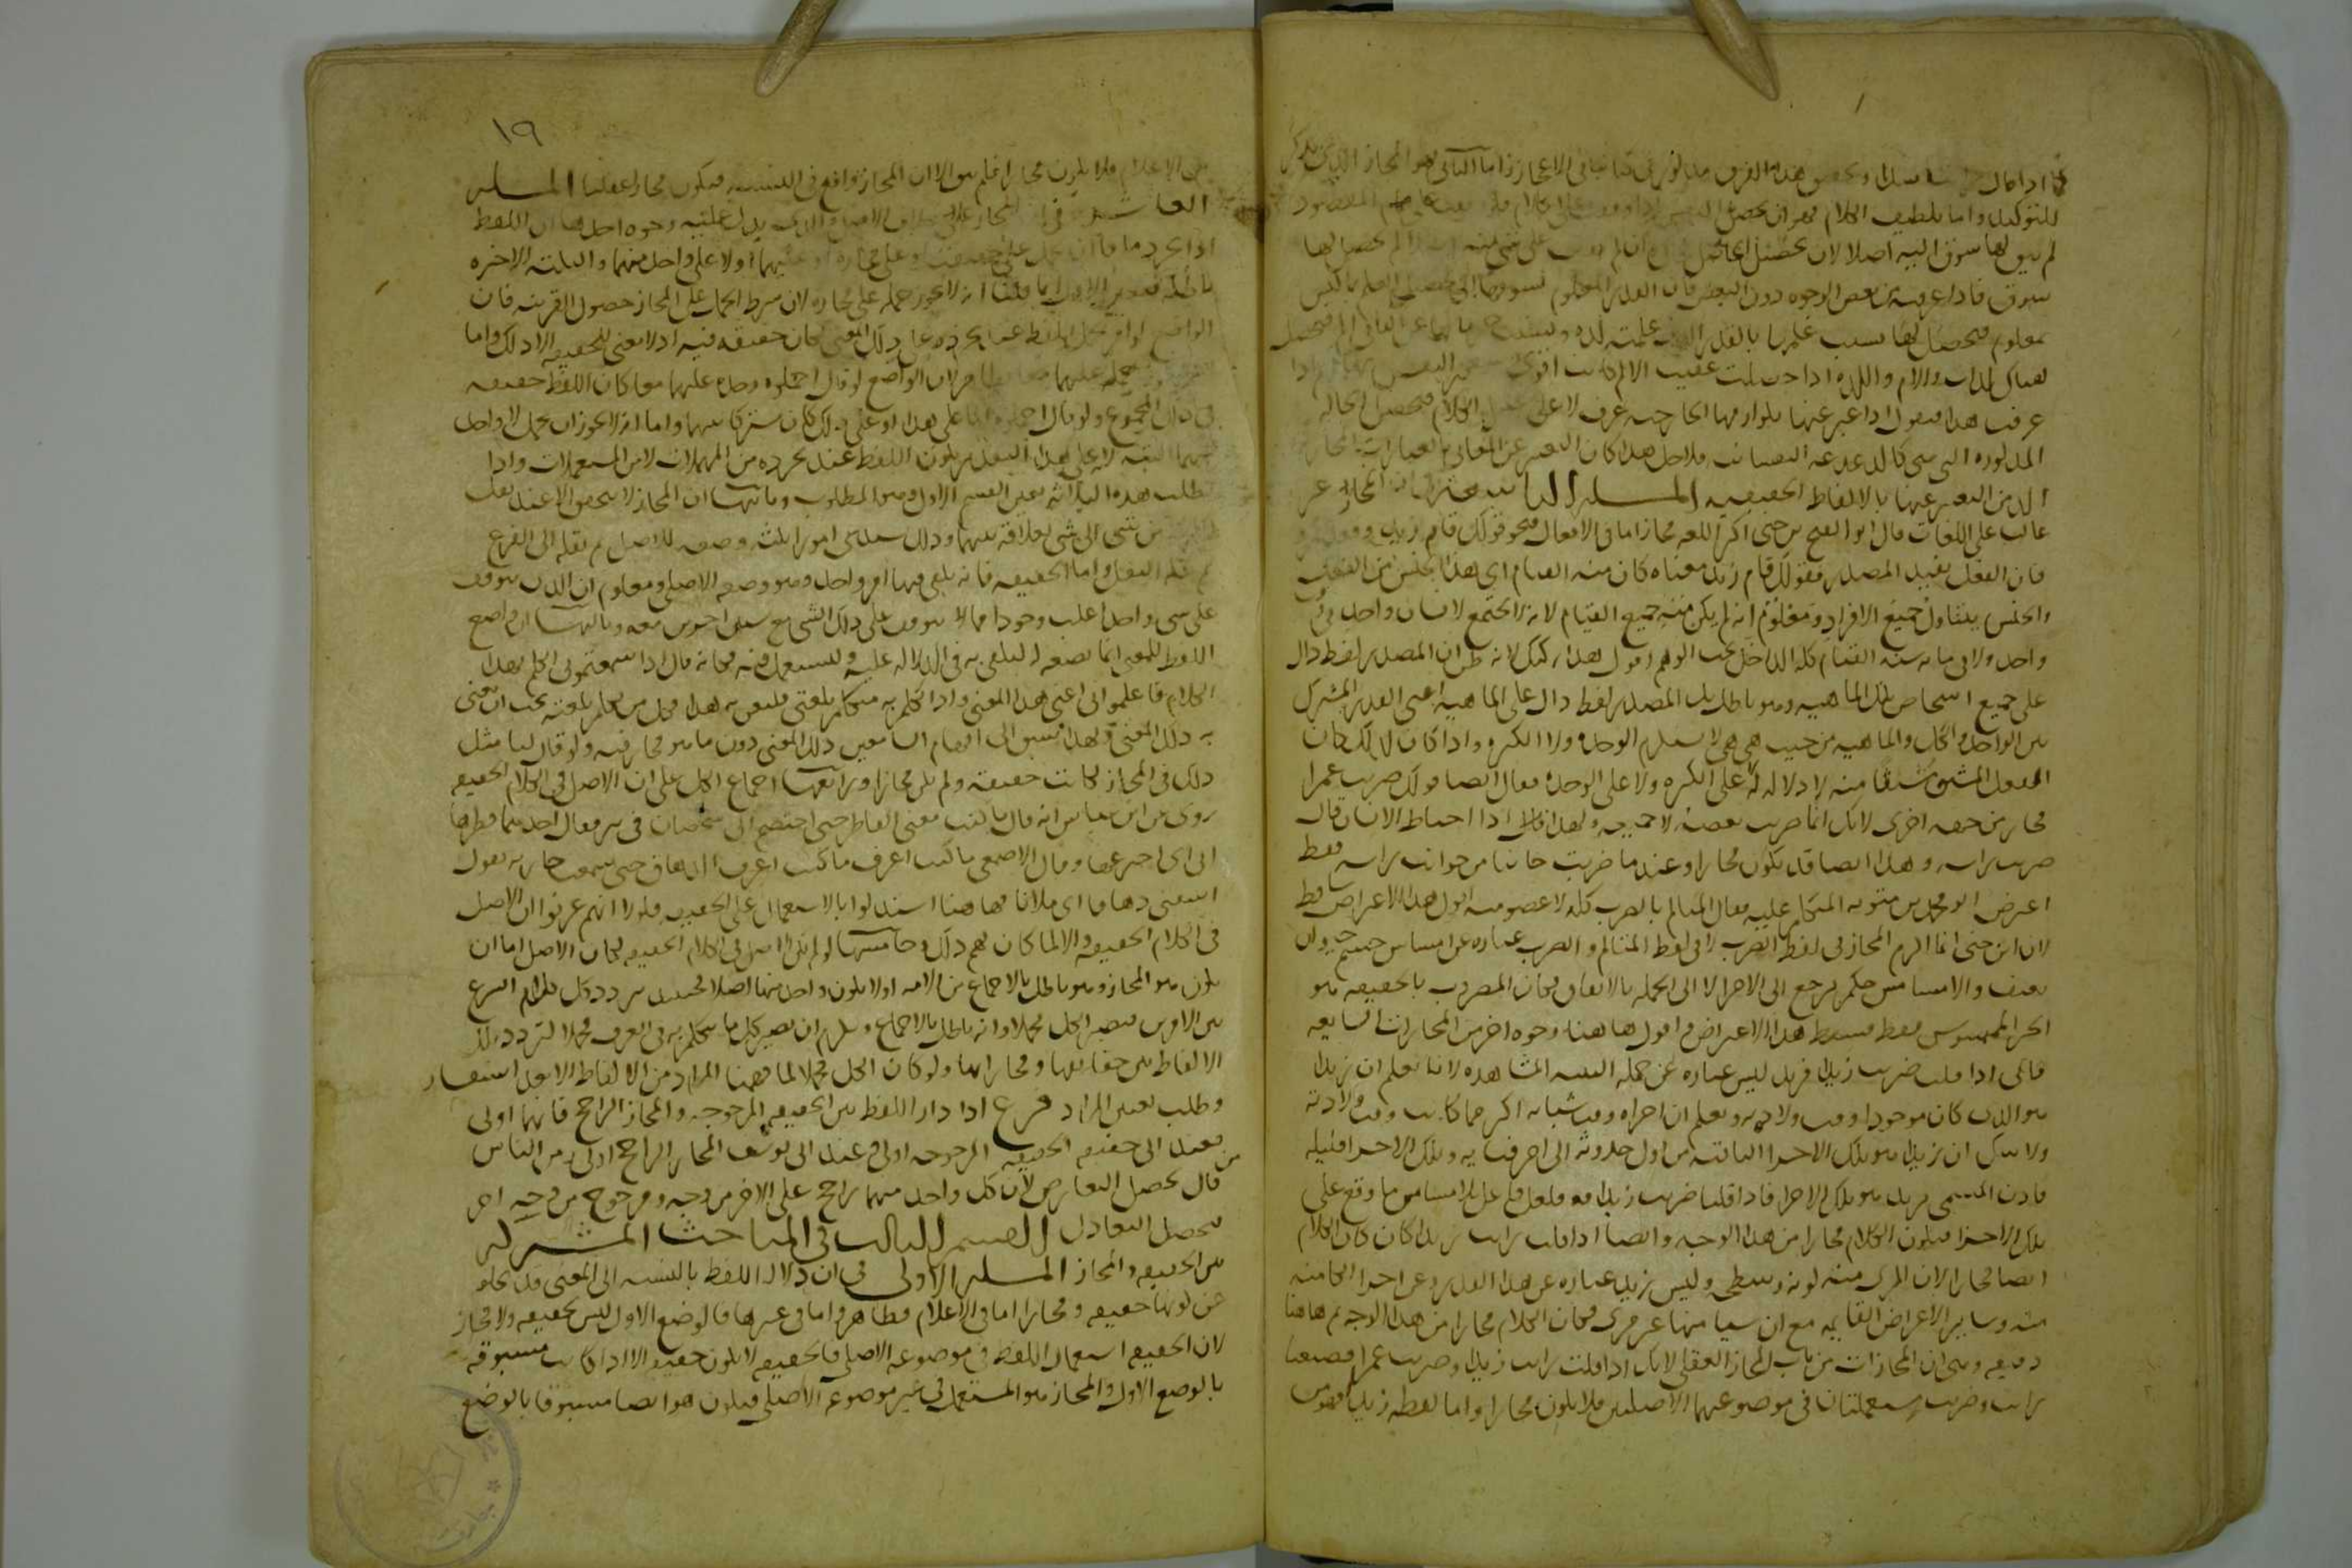 للتوكيد واما تلطيف الكلام فهو ان النفس اذا وقفت على الكلام المقصود
لم يبق لها شوق اليه اصلا لان تحصيل الحاصل على شي منه لم يحصل لها
شوق فاذا عرفته من بعض الوجوه دون البعض فان القدر المعلوم يشوقها الى تحصيل العلم بما ليس
بمعلوم فيحصل لها بسبب علمها بالقدر الذي علمته لذة وبسبب حرمانها عن الباقي الم فيحصل
هناك لذات والام واللذة اذا حصلت عقيب الالم كانت اقوى
عرفت هذا فنقول اذا عبر عنها بلوازمها الخارجية عرف لا على الكلام فيحصل الحالة
المذكورة التي هي كالدغدغة النفسانية فلاجل هذا كان التعبير عن المعاني بالعبارات المجازية
الذ من التعبير عنها بالالفاظ الحقيقية المسئلة التاسعة في ان المجاز غير
غالب على اللغات قال ابو الفتح بن جني اكثر اللغة مجاز اما في الافعال فنحو قولك قام زيد
فان الفعل يفيد المصدر فقولك قام زيد معناه كان منه القيام اي هذا الجنس من الفعل
والجنس يتناول جميع الافراد ومعلوم انه لم يكن منه جميع القيام لانه لا يجتمع لانسان واحد في
واحد ولا في مائة سنة القيام كله الداخل تحت الوهم اقول هذا ركيك لانه ظن ان المصدر لفظ دال
على جميع اشخاص تلك الماهية وهو باطل بل المصدر لفظ دال على الماهية اعني القدر المشترك
بين الواحد والكل والماهية من حيث هي هي لا تستلزم الوحدة ولا الكثرة واذا كان كذلك كان
الفعل المشتق منه لا دلالة له على الكثرة ولا على الوحدة فقال ايضا قولك ضربت عمرا
مجاز من جهة اخرى لانك انما ضربت بعضه لا جميعه ولهذا اذا احتاط الانسان قال
ضربت راسه وهذا ايضا قد يكون مجازا وعندما ضربت جانبا من جوانب راسه فقط
اعترض ابو محمد بن متويه المتكلم عليه فقال المتالم بالضرب كله لا عضو منه اقول هذا الاعتراض ساقط
لان ابن جني انما الزم المجاز في لفظ الضرب لا في لفظ المتالم والضرب عبارة عن امساس جسم حيوان
بعنف والامساس حكم يرجع الى الاجزاء لا الى الجملة بالاتفاق فكان المضروب بالحقيقة هو
الجزء الممسوس فقط فسقط هذا الاعتراض اقول هاهنا وجوه اخر من المجازات الشايعة
فانك اذا قلت ضربت زيدا فزيد ليس عبارة عن جملة البنية المشاهدة لانا نعلم ان زيدا
هو الذي كان موجودا وقت ولادته ونعلم ان اجزاه وقت شبابه اكثر مما كانت وقت ولادته
ولا شك ان زيدا هو تلك الاجزا الباقية من اول حدوثه الى اخر فنايه وتلك الاجزا قليلة
فاذن المسمى بزيد هو تلك الاجزا فاذا قلنا ضربت زيدا فلعل الامساس ما وقع على
تلك الاجزا فيكون الكلام مجازا من هذا الوجه وايضا اذا قلت رايت زيدا كان الكلام
ايضا مجازا لان المري منه لونه وسطحه وليس زيد عبارة عن هذا القدر دون اجزا الكامنة
منه وساير الاعراض القايمة مع ان شيا منها غير مري فكان الكلام مجازا من هذا الوجه ثم هاهنا
دقيقة وهي ان المجازات من باب المجاز العقلي لانك اذا قلت رايت زيدا وضربت عمرا فصيغتا
رايت وضربت مستعملتان في موضوعهما الاصليين فلا يكون مجازا واما لفظة زيد فهو من
١٩
الاعلام فلا يكون مجازا فلم يبق الا ان المجاز واقع في النسبة فيكون مجازا عقليا المسئلة
العاشرة في ان المجاز على خلاف الاصل والذي يدل عليه وجوه احدها ان اللفظ
اذا تجرد فاما ان يحمل على حقيقته او على مجازه او عليهما او لا على واحد منهما والثلثة الاخيرة
باطلة فتعين الاول انما قلنا انه لا يجوز حمله على مجازه لان شرط الحمل على المجاز حصول القرينة فان
الواضع لو امر بحمل اللفظ عند تجرده على ذلك المعنى لكان حقيقة فيه اذ لا معنى للحقيقة الا ذلك واما
حمله عليهما معا فظاهر لان الواضع لو قال احملوه وحده عليهما معا كان اللفظ حقيقة
في ذلك المجموع ولو قال احملوه اما على هذا او على ذلك كان مشتركا بينهما واما انه لا يجوز ان يحمل لا واحد
منهما البتة لان على هذا التقدير يكون اللفظ عند تجرده من المهملات لا من المستعملات واذا
بطلت هذه الثلثة تعين القسم الاول وهو المطلوب وثانيها ان المجاز لا يتحقق الا عند نقل
من شي الى شي لعلاقة بينهما وذلك يستدعي امورا ثلثة وضعه للاصل ثم نقله الى الفرع
ثم علة النقل واما الحقيقة فانه يكفي فيها امر واحد وهو وضعه الاصلي ومعلوم ان الذي يتوقف
على شي واحد اغلب وجودا مما لا يتوقف على ذلك الشي مع شيئين اخرين معه وثالثها ان واضع
اللفظ للمعنى انما يضعه له ليكتفى به في الدلالة عليه وليستعمل فيه فكانه قال اذا سمعتموني اتكلم بهذا
الكلام فاعلموا اني اعني هذا المعنى واذا تكلم به متكلم بلغتي فليعن به هذا فكل من تكلم بلغته يجب ان يعني
به ذلك المعنى ولهذا يسبق الى افهام السامعين ذلك المعنى دون ما هو مجاز فيه ولو قال لنا مثل
ذلك في المجاز لكانت حقيقة ولم يكن مجازا ورابعها اجماع الكل على ان الاصل في الكلام الحقيقة
روي عن ابن عباس انه قال ما كنت معنى الفاطر حتى اختصم الي شخصان في بير فقال احدهما فطرها
ابي اي اخترعها وقال الاصمعي ما كنت اعرف الدهاق حتى سمعت جارية تقول
اسقني دهاقا اي ملانا فهاهنا استدلوا بالاستعمال على الحقيقة فلولا انهم عرفوا ان الاصل
في الكلام الحقيقة والا لما كان لهم ذلك وخامسها لو لم يكن الاصل في الكلام الحقيقة لكان الاصل اما ان
يكون هو المجاز وهو باطل بالاجماع من الامة او لا يكون واحد منهما اصلا فحينئذ يتردد كل كلام الشرع
بين الامرين فيصير الكل مجملا وانه باطل بالاجماع ويلزم ان يصير كل ما يتكلم به في العرف مجملا لتردد تلك
الالفاظ بين حقايقها ومجازاتها ولو كان الكل مجملا لما فهمنا المراد من الالفاظ الا بعد استفسار
وطلب تعيين المراد فرع اذا دار اللفظ بين الحقيقة المرجوحة والمجاز الراجح فايهما اولى
فعند ابي حنيفة الحقيقة المرجوحة اولى وعند ابي يوسف المجاز الراجح اولى ومن الناس
من قال يحصل التعارض لان كل واحد منهما راجح على الاخر من وجه ومرجوح من وجه اخر
فيحصل التعادل القسم الثالث في المباحث المشتركة
بين الحقيقة والمجاز المسئلة الاولى في ان دلالة اللفظ بالنسبة الى المعنى قد تخلو
عن كونها حقيقة ومجازا اما في الاعلام فظاهر واما في غيرها فالوضع الاول ليس بحقيقة ولا مجاز
لان الحقيقة استعمال اللفظ في موضوعه الاصلي فالحقيقة لا يكون حقيقة الا اذا كانت مسبوقة
بالوضع الاول والمجاز هو المستعمل في غير موضوعه الاصلي فيكون هو ايضا مسبوقا بالوضع